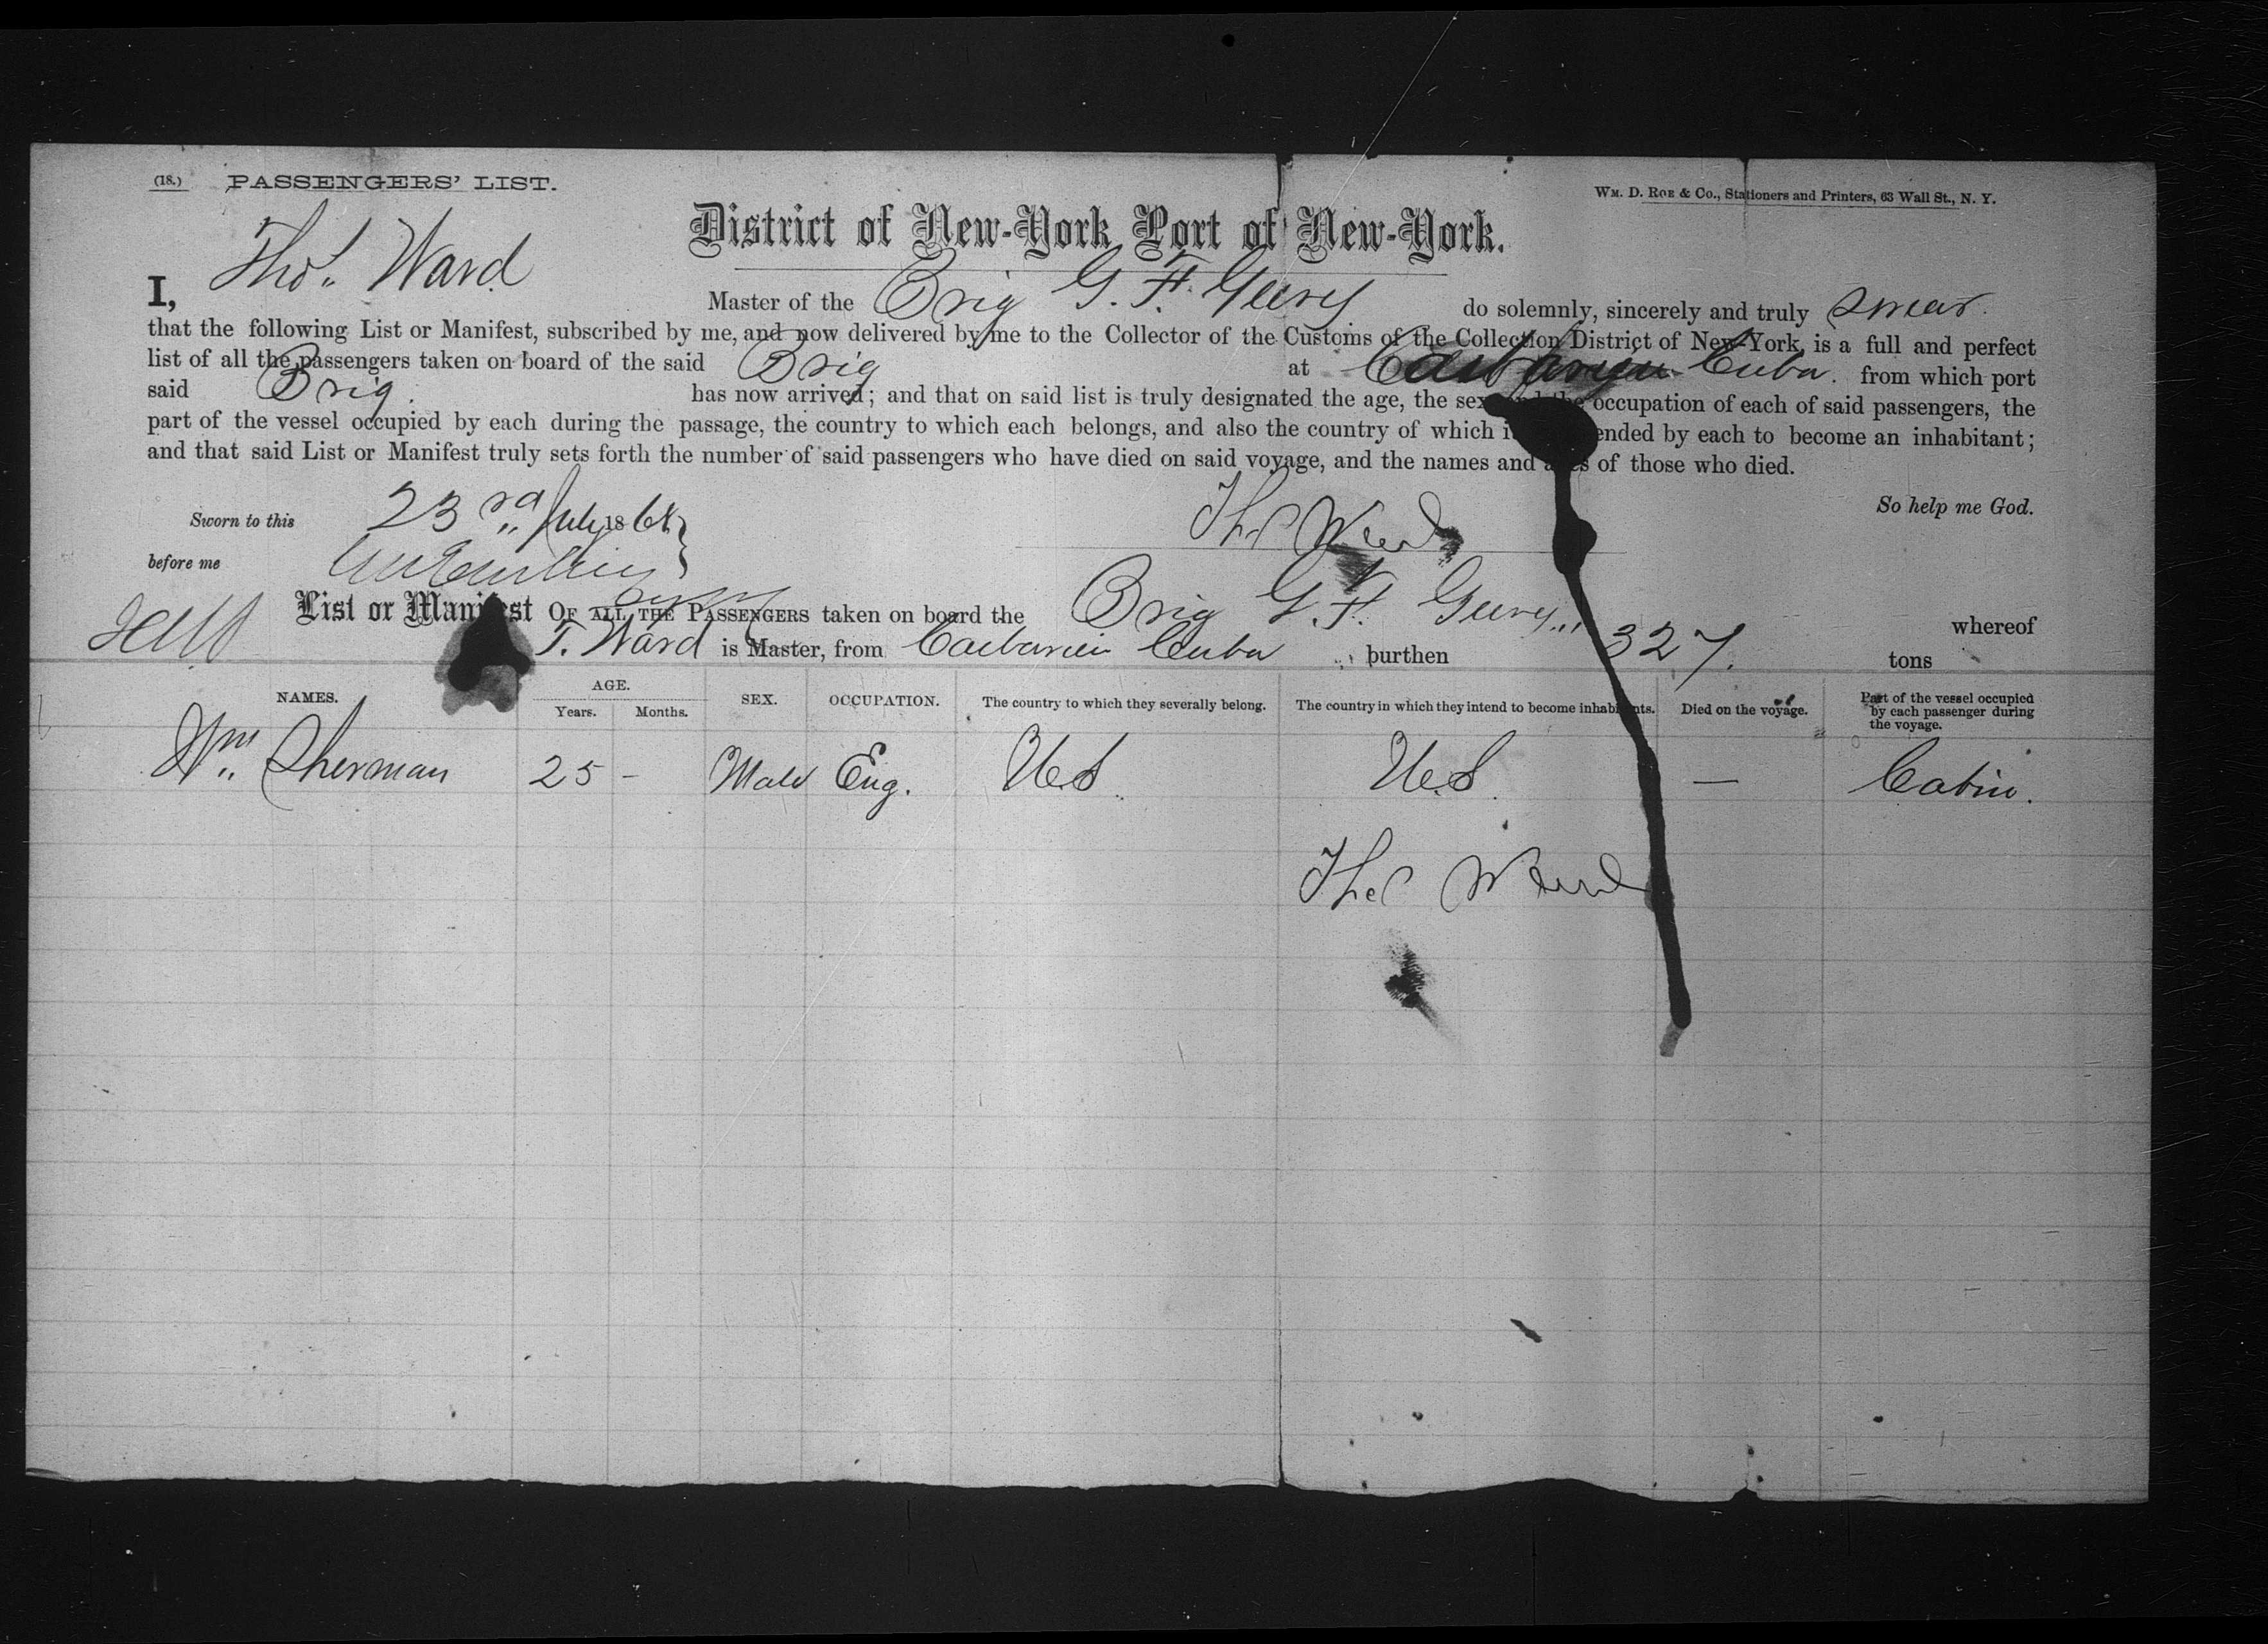 (18.) PASSENGERS' LIST.
WM. D. ROE & CO., Stationers and Printers, 63 Wall St., N. Y.
District of New-York Port of New-York.
I, Thos. Ward Master of the Brig G. F. Geery do solemnly, sincerely and truly swear.
that the following List or Manifest, subscribed by me, and now delivered by me to the Collector of the Customs of the Collection District of New York, is a full and perfect
list of all the passengers taken on board of the said Brig at Cuba. from which port
said Brig. has now arrived; and that on said list is truly designated the age, the sex and the occupation of each of said passengers, the
part of the vessel occupied by each during the passage, the country to which each belongs, and also the country of which it ended by each to become an inhabitant;
and that said List or Manifest truly sets forth the number of said passengers who have died on said voyage, and the names and ages of those who died.
So help me God.
Sworn to this 23rd July 1868
Thos Ward
before me
List or Manifest OF ALL THE PASSENGERS taken on board the Brig G. F. Geery whereof
T. Ward is Master, from Caibarien Cuba burthen 327. tons
NAMES. AGE. Years. Months. SEX. OCCUPATION. The country to which they severally belong. The country in which they intend to become inhabitants. Died on the voyage. Part of the vessel occupied by each passenger during the voyage.
Wm. Sherman 25 - Male Eng. U.S. U.S. — Cabin.
Thos Ward